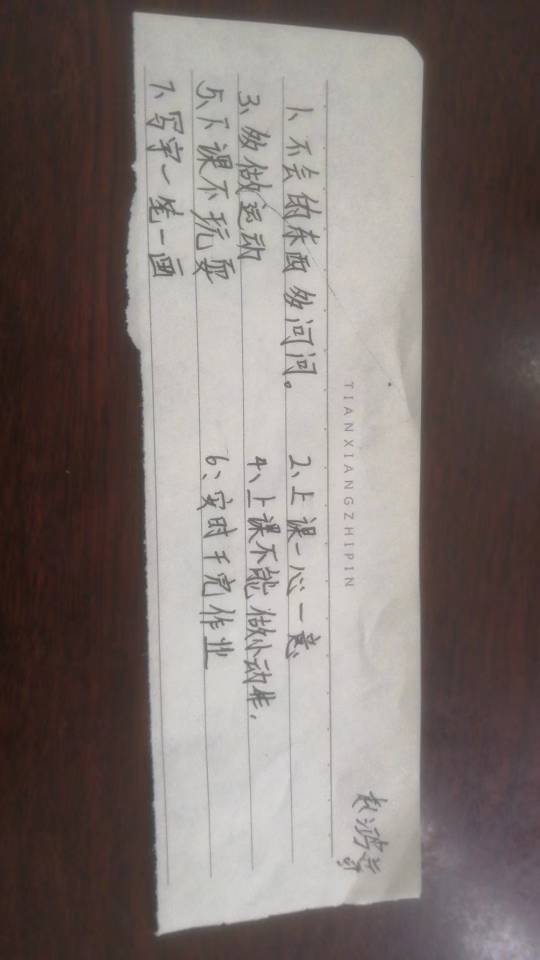 TIANXIANGZHIPIN
赵鸿
1、不会的东西多问问。 2、上课一心一意
3、多做运动 4、上课不能做小动作.
5、下课不玩耍 6、实时干完作业
7、写字一笔一画